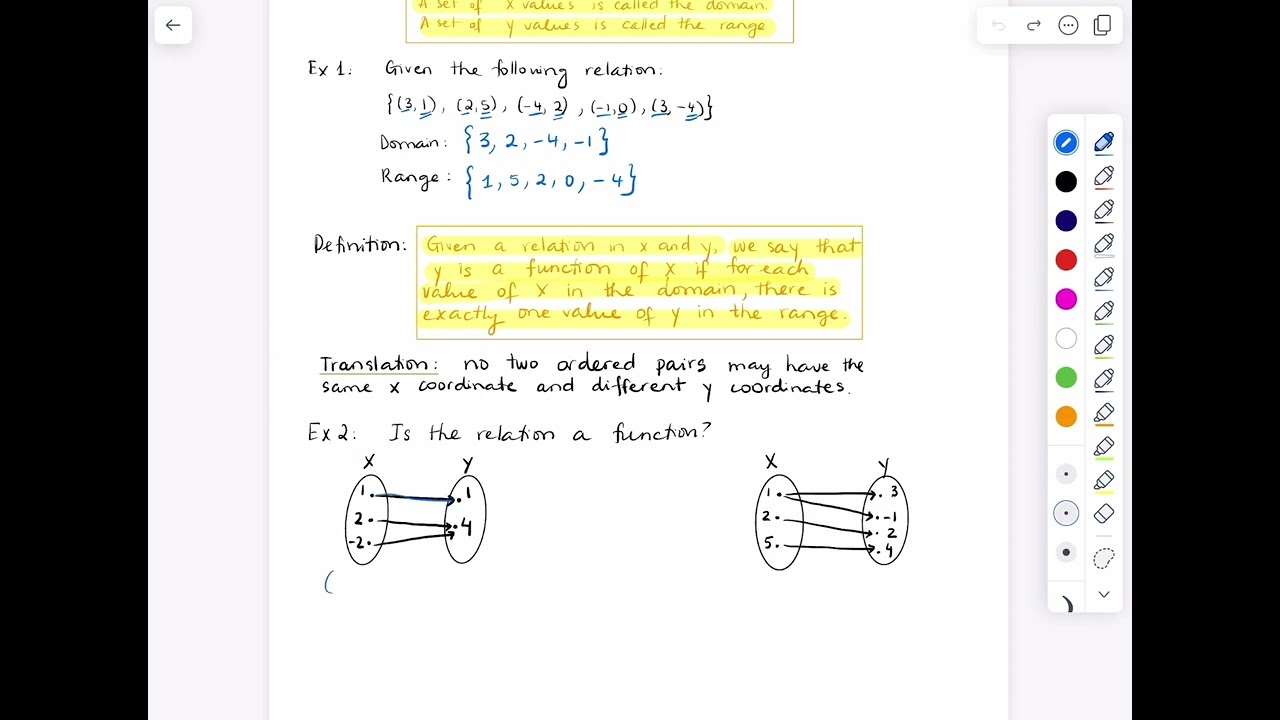 A set of x values is called the domain.
A set of y values is called the range
Ex 1: Given the following relation:
{(3,1), (2,5), (-4,2), (-1,0), (3,-4)}
Domain: {3, 2, -4, -1}
Range: {1, 5, 2, 0, -4}
Definition: Given a relation in x and y, we say that
y is a function of x if for each
value of x in the domain, there is
exactly one value of y in the range.
Translation: no two ordered pairs may have the
same x coordinate and different y coordinates.
Ex 2: Is the relation a function?
X Y X Y
1 1 1 3
2 4 2 -1
-2 5 2
4
(